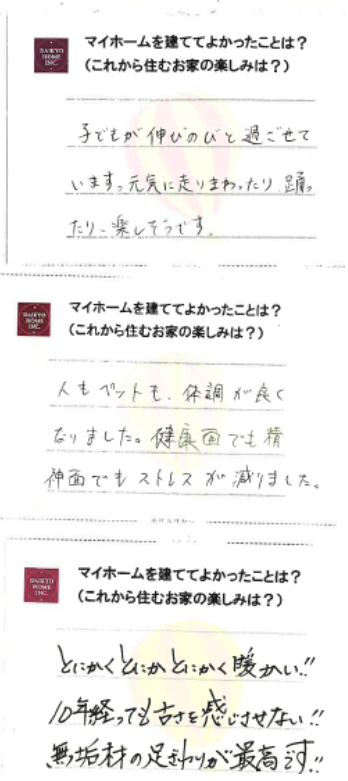 DAIKYO
HOME
INC.
マイホームを建ててよかったことは？
(これから住むお家の楽しみは？)
子どもが伸びのびと過ごせて
います。元気に走りまわったり、踊っ
たり、楽しそうです。
DAIKYO
HOME
INC.
マイホームを建ててよかったことは？
(これから住むお家の楽しみは？)
人もペットも、体調が良く
なりました。健康面でも精
神面でもストレスが減りました。
DAIKYO
HOME
INC.
マイホームを建ててよかったことは？
(これから住むお家の楽しみは？)
とにかくとにかとにかく暖かい!!
10年経っても古さを感じさせない!!
無垢材の足ざわりが最高です!!